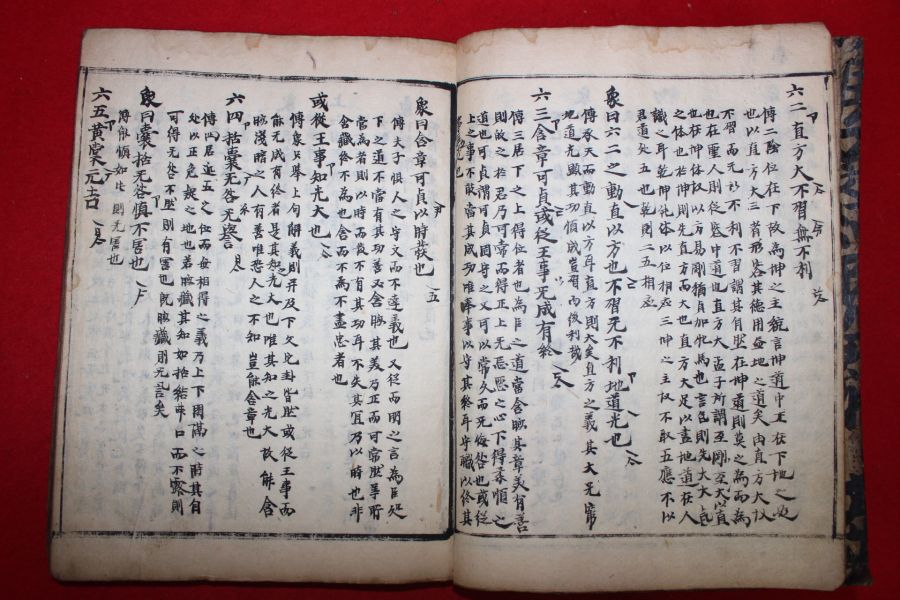 六二直方大不習無不利
傳二陰位在下故為坤之主統言坤道中正在下地之道
也以直方大三者形容其德用盡地之道矣由直方大故
不習而无所不利不習謂其自然在坤道則莫之為而為
也在聖人則從容中道也直方大孟子所謂至剛至大以直
也在坤体故以方易剛猶貞加牝馬也言氣則先大大氣
之体也於坤則先直方由直方而大也直方大足以盡地道在人
識之耳乾坤純体以位相應二坤之主故不取五應不以
君道處五也乾則二五相應
象曰六二之動直以方也不習无不利地道光也
傳承天而動直以方耳直方則大矣直方之義其大无窮
地道光顯其功順成豈習而後利哉
六三含章可貞或從王事无成有終
傳三居下之上得位者也為臣之道當含晦其章美有善
則故之於君乃可常而得正上无忌惡之心下得柔順之
道也可貞謂可貞固守之又可以常久而无悔咎也或從
上之事不敢當其成功唯奉事以守其終耳守職以終其
象曰含章可貞以時發也
傳夫子惧人之守文而不達義也又從而明之言為臣處
下之道不當有其功善必含晦其美乃正而可常然義所
當為者則以時而發不有其功耳不失其宜乃以時也非
含藏終不為也含而不為不盡忠者也
或從王事知光大也
傳象只舉上句解義則并及下文他卦皆然或從王事而
能无成有終者是其知光大也唯其知之光大故能含
晦淺暗之人有善唯恐人之不知豈能含章也
六四括囊无咎无譽
傳四居近五之位而无相得之義乃上下閉隔之時其自
處以正危疑之地也若晦藏其知如括結囊口而不露則
可得无咎不然則有害也既晦藏則无譽矣
象曰囊括无咎慎不害也
傳能慎如此則无害也
六五黃裳元吉